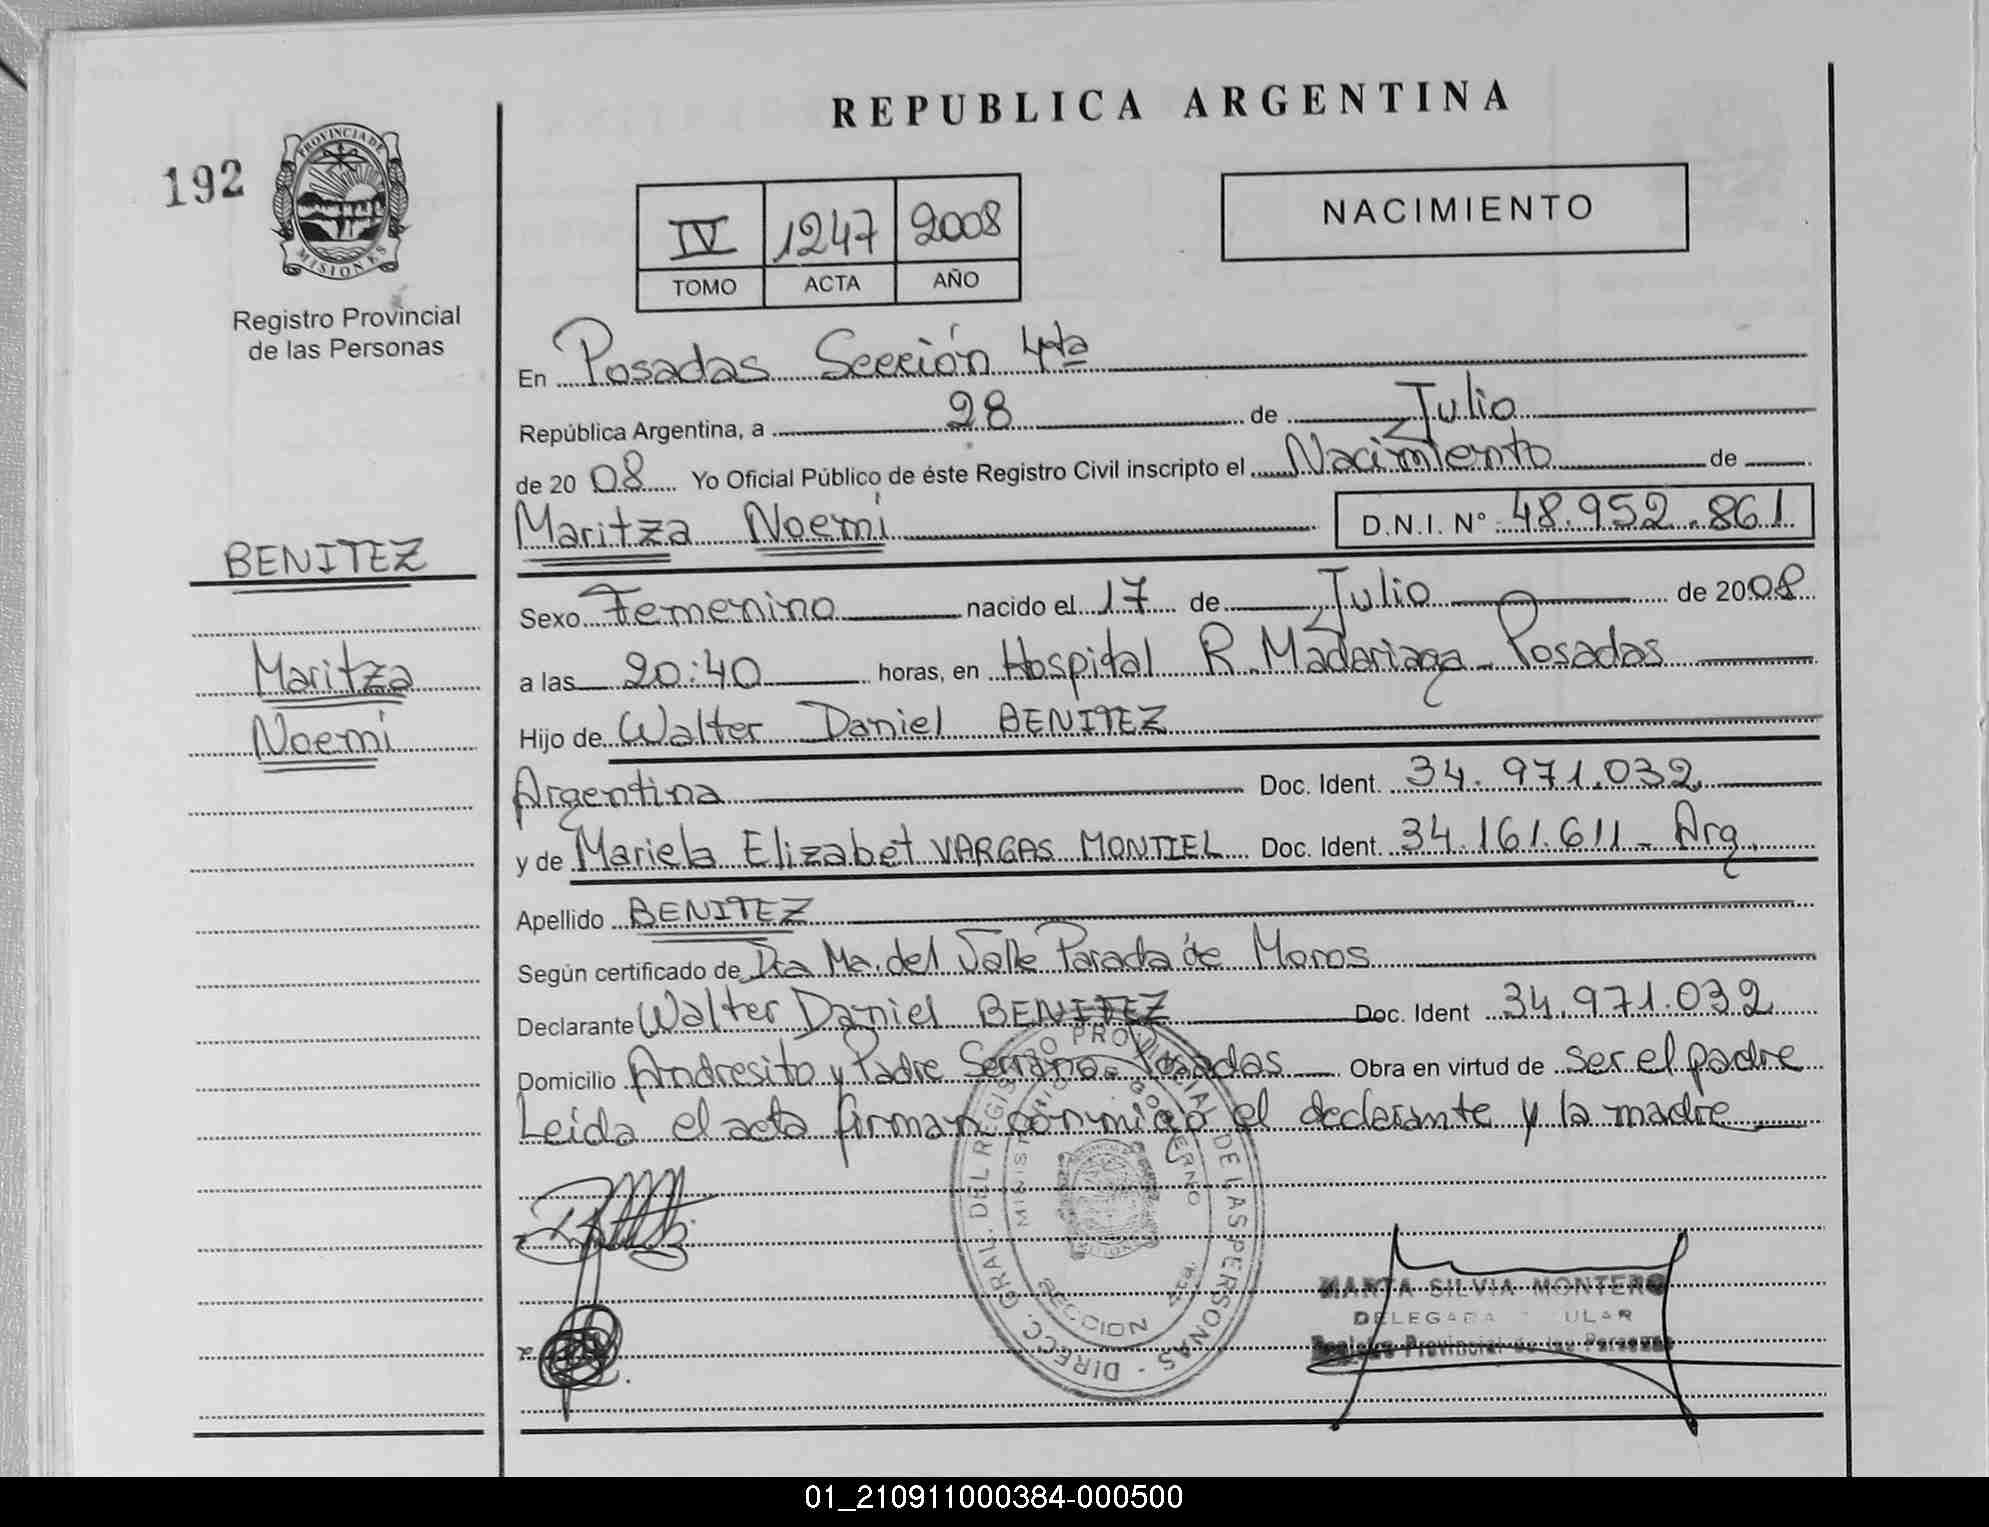 REPUBLICA ARGENTINA
192
PROVINCIA DE
MISIONES
Registro Provincial
de las Personas
IV 1247 2008
TOMO ACTA AÑO
NACIMIENTO
En Posadas Sección 4ta
República Argentina, a 28 de Julio
de 2008 Yo Oficial Público de éste Registro Civil inscripto el Nacimiento de
Maritza Noemi D.N.I. Nº 48.952.861
BENITEZ
Maritza
Noemi
Sexo Femenino nacido el 17 de Julio de 2008
a las 20:40 horas, en Hospital R. Madariaga - Posadas
Hijo de Walter Daniel BENITEZ
Argentina Doc. Ident. 34.971.032
y de Mariela Elizabet VARGAS MONTIEL Doc. Ident. 34.161.611 - Arg.
Apellido BENITEZ
Según certificado de Dra Ma. del Valle Parada de Moros
Declarante Walter Daniel BENITEZ Doc. Ident 34.971.032
Domicilio Andresito y Padre Serrano - Posadas Obra en virtud de ser el padre
Leida el acta firman conmigo el declarante y la madre
DIRECC. GRAL. DEL REGISTRO PROVINCIAL DE LAS PERSONAS
MINISTERIO GOBIERNO
MISIONES
SECCION 4ta.
MARTA SILVIA MONTERO
DELEGADA
Registro Provincial de las Personas
01_210911000384-000500